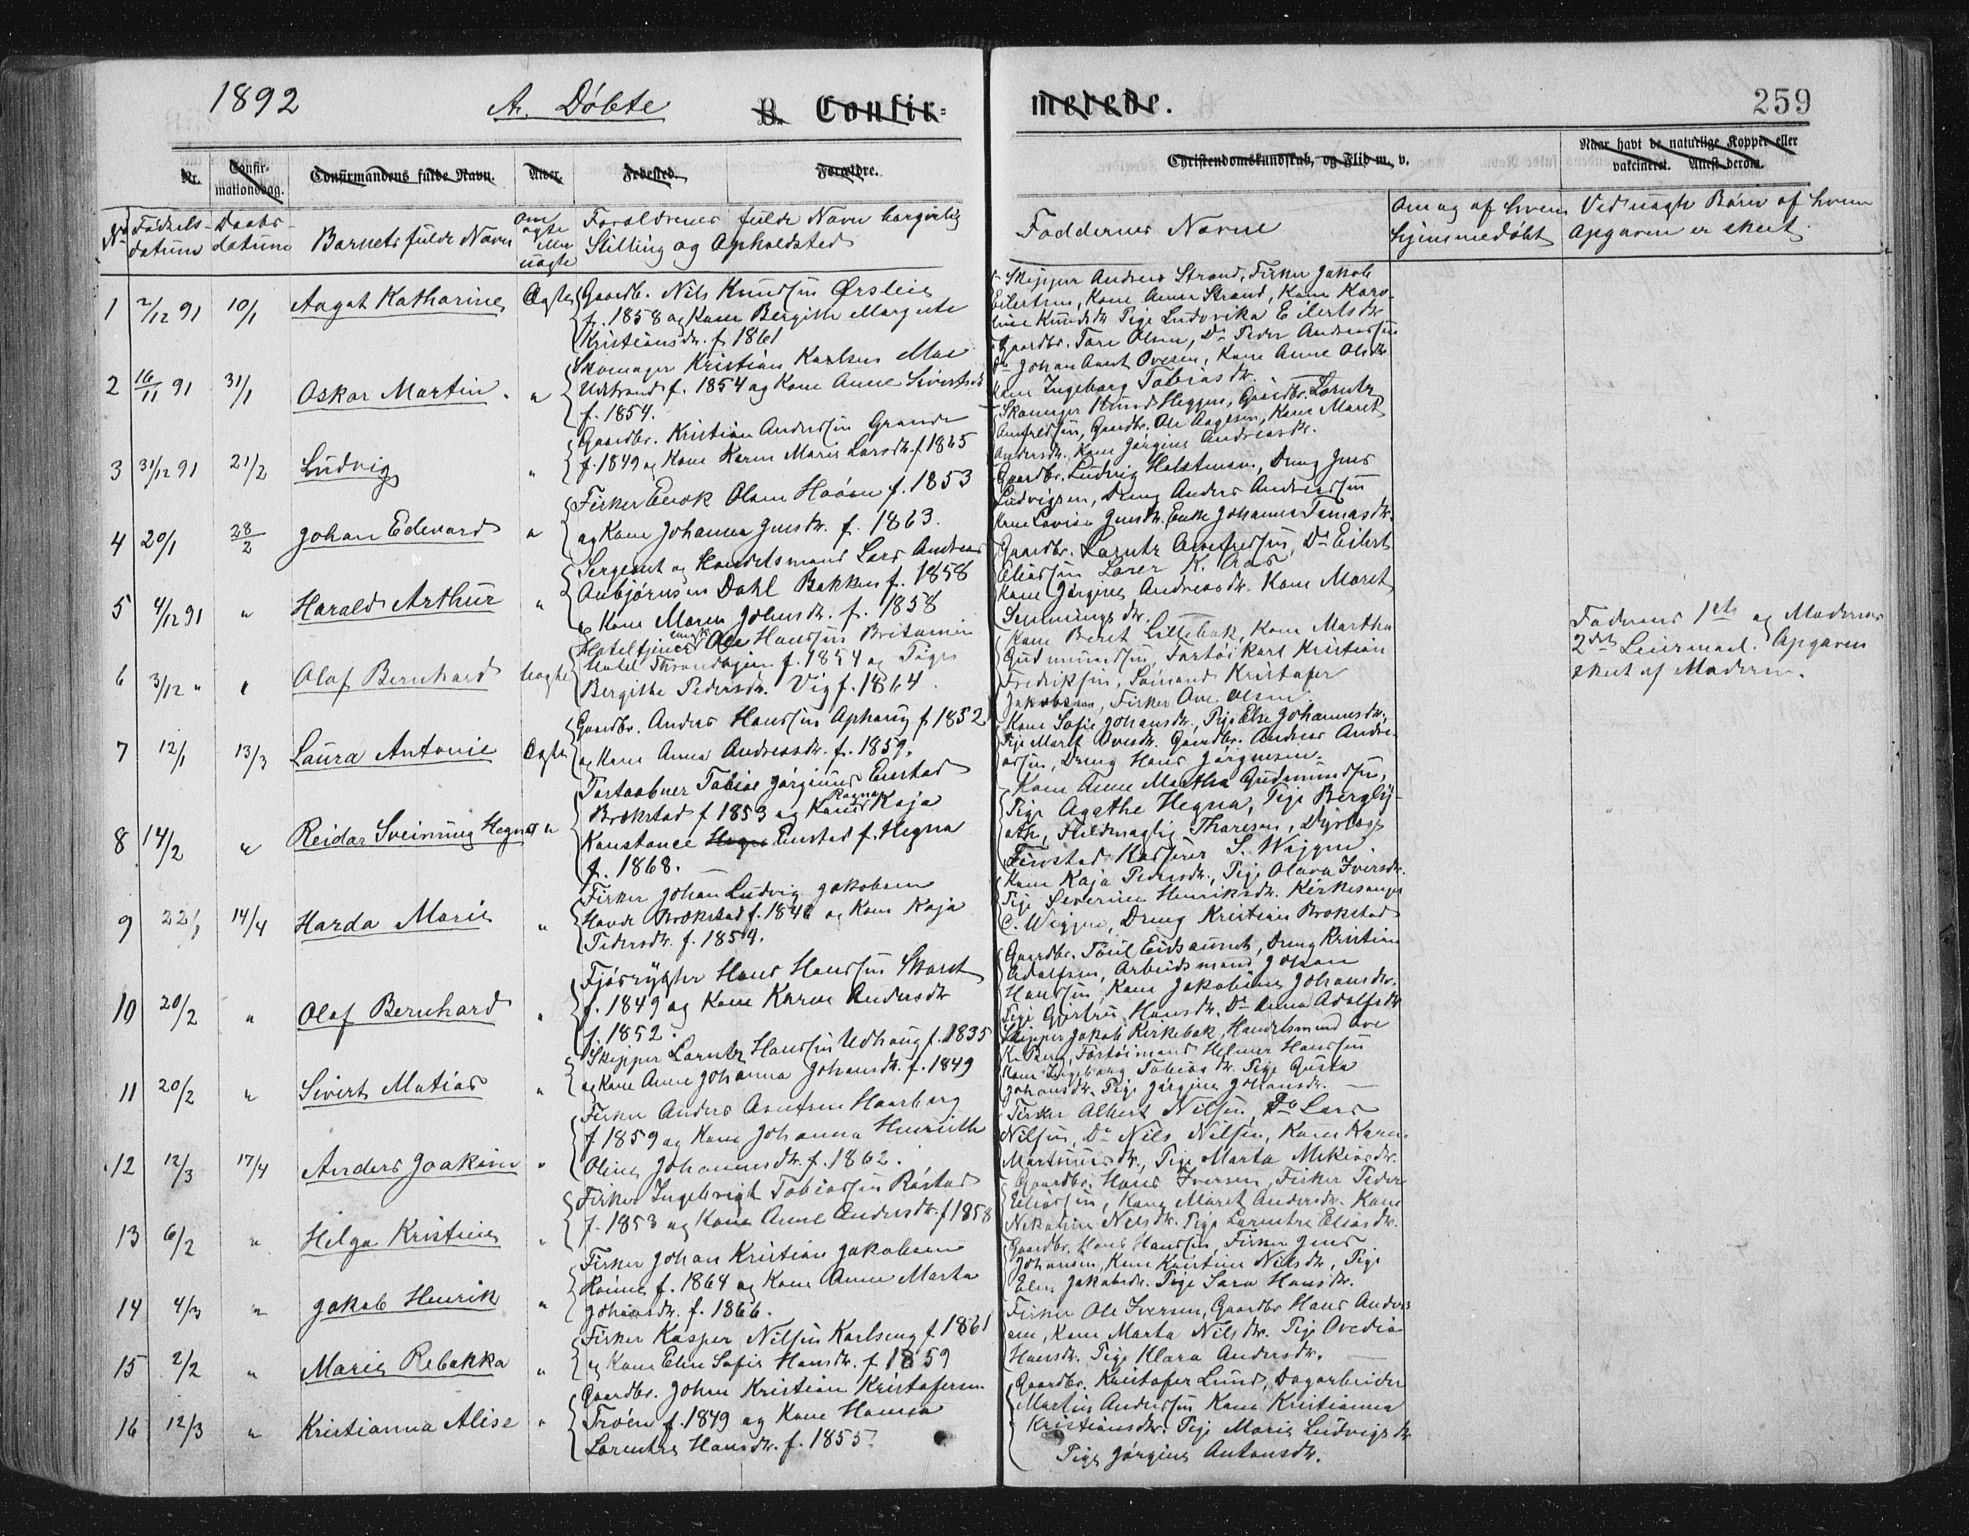 1892
A. Døbte
B. Confir-
merede.
259
Nr.
Confir-
mationsdag.
Confirmandens fulde Navn.
Alder.
Fødested.
Forældre.
Christendomskundskab, og Flid m. v.
Naar havt de naturlige Kopper eller
vaccineret. Attest derom.
Nr
Fødsels-
datum
Daabs-
datum
Barnets fulde Navn
om
ægte
eller
uægte
Forældrenes fulde Navn borgerlig
Stilling og Opholdsted
Faddernes Navne
Om og af hvem
hjemmedøbt
Ved uægte Børn af hvem
Opgaven er skeet.
1 2/12 91 10/1 Aagot Katharine Ægte
Gaardb. Nils Knudsen Ørsleie
f. 1858 og Kone Bergith Margrete
Kristiansdr. f. 1861
Skipper Andreas Strand, Fisker Jakob
Eilertsen, Kone Anna Strand, Kone Karo-
line Knudsdr. Pige Ludovika Eilertsdr.
2 16/11 91 31/1 Oskar Martin "
Skomager Kristian Karlsen Moe
Udstrand f. 1854 og Kone Anne Sivertsdr.
f. 1854.
Gaardbr. Tore Olsen, Do Peder Andreassen
Do Johan Ovesen, Kone Anne Olsdr.
Kone Ingeborg Tobiasdr.
3 31/12 91 21/2 Ludvig "
Gaardbr. Kristian Andersen Grande
f. 1849 og Kone Karen Marie Larsdr. f. 1865
Skomager Heggen, Gaardbr. Lorentz
Arnfredsen, Gaardbr. Ole Aagesen, Kone Maret
Andersdr. Kone Jørgine Andreasdr.
4 20/1 28/2 Johan Edevard "
Fisker Enok Olsen Hoøen f. 1853
og Kone Johanna Jensdr. f. 1863.
Gaardbr. Ludvig Holstmann, Dreng Jens
Ludvigsen, Dreng Anders Andreassen
Kone Lovise Jensdr. Enke Johanna Tomasdr.
5 4/12 91 " Harald Arthur "
Sergeant og Handelsmand Lars Andreas
Anbjørnsen Dahl Bakken f. 1858
og Kone Maren Johnsdr. f. 1858
Gaardbr. Lorntz Arnfredsen, Do Eilert
Eliassen Lærer K. Aas
Kone Jørgine Andreasdr. Kone Maret
Henningsdr.
6 3/12 " " Olaf Bernhard Uægte
Hoteltjener Ole Hansen Britannia
Hotel Throndhjem f. 1854 og Pige
Bergithe Pedersdr. Vig f. 1864.
Kone Beret Lillebak, Kone Martha
Gudmundsen, Fartøikarl Kristian
Fredriksen, Sømand Kristofer
Jakobsen, Fisker Ove Olsen
Faderens 1ste og Moderens
2det Leiermaal. Opgaven
skeet af Moderen.
7 12/1 13/3 Laura Antonie Ægte
Gaardbr. Anders Hansen Ophaug f. 1852
og Kone Anna Andreasdr. f. 1859.
Kone Sofie Johansdr., Pige Else Johannesdr.,
Pige Marit Ovesdr. Gaardbr. Andreas Andre-
assen, Dreng Hans Jørgensen.
8 14/2 " Reidar Sveinung Hegna "
Postaabner Tobias Jørginus Enstad
Brækstad f. 1853 og Kone Ragna Kaja
Konstance Hegna Enstad f. Hegna
f. 1868.
Kone Anne Martha Gudmundsen,
Pige Agathe Hegna, Pige Bergljo-
Fuldmægtig Thoresen, Dyrlæge
Finstad Kasserer S. Wiggen.
9 22/1 14/4 Harda Marie "
Fisker Johan Ludvig Jakobsen
Hovde Brækstad f. 1846 og Kone Kaja
Pedersdr. f. 1854.
Kone Kaja Pedersdr., Pige Olava Iversdr.
Pige Severine Henriksdr. Kirkesanger
C. Wiggen, Dreng Kristian Brækstad
10 20/2 " Olaf Bernhard "
Fjøsrygter Hans Hansen
f. 1849 og Kone Karen Andersdr.
f. 1852.
Gaardbr. Poul Eidsaunet, Dreng Kristian
Adolfsen, Arbeidsmand Johan
Hansen, Kone Jakobine Johansdr.
Pige Gjertru Hansdr. Do Anna Adolfsdr.
11 20/2 " Sivert Matias "
Skipper Lorntz Hansen Udhaug f. 1835
og Kone Anne Johanna Johansdr. f. 1849
Skipper Jakob Kirkebak, Handelsmand Ove
K. Berg, Fartøimand Helmer Hansen
Kone Ingeborg Tobiasdr. Pige Gusta
Johansdr. Pige Jørgine Johansdr.
12 12/3 17/4 Anders Joakim "
Fisker Anders Arntsen Haarberg
f. 1859 og Kone Johanna Henrikke
Oline Johannesdr. f. 1862.
Fisker Albert Nilsen, Do Lars
Nilsen, Do Nils Nilsen, Kone Karen
Martinusdr., Pige Marta Mekiasdr.
13 6/2 " Helga Kristine "
Fisker Ingebrigt Tobiassen Røstad
f. 1853 og Kone Anne Andersdr. f. 1858
Gaardbr. Hans Iversen, Fisker Peder
Eliassen, Kone Maret Andersdr. Kone
Nikoline Nilsdr. Pige Lorentze Eliasdr.
14 4/3 " Jakob Henrik "
Fisker Johan Kristian Jakobsen
f. 1864 og Kone Anne Marta
Johansdr. f. 1866.
Gaardbr. Hans Hansen, Fisker Jens
Johansen, Kone Kristine Nilsdr., Pige
Elen Jakobsdr. Pige Sara Hansdr.
15 2/2 " Marie Rebekka "
Fisker Kasper Nilsen Karlseng f. 1861
og Kone Elen Sofie Hansdr. f. 1859
Fisker Ole Iversen, Gaardbr. Hans Anders-
en, Kone Marta Nilsdr. Pige Ovedia
Hansdr. Pige Klara Andersdr.
16 12/3 " Kristianna Alise "
Gaardbr. Johan Kristian Kristofersen
Trøen f. 1849 og Kone Hansa
Lorentze Hansdr. f. 1855.
Gaardbr. Kristofer Lund, Dagarbeider
Martin Andersen Kone Kristianna
Kristiansdr. Pige Marie Ludvigsdr.
Pige Jørgine Antonsdr.